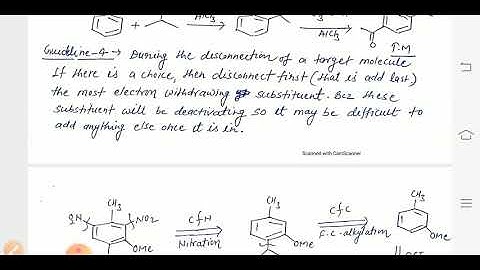 + AlCl3 AlCl3
O T.M
Guideline-4 → During the disconnection of a target molecule
If there is a choice, then disconnect first (that is add last)
the most electron withdrawing substituent. Bcz these
substituent will be deactivating so it may be difficult to
add anything else once it is in.
Scanned with CamScanner
CH3 CH3 CH3
O2N NO2 CfN CfC
Nitration OMe F.C-alkylation OMe
OMe